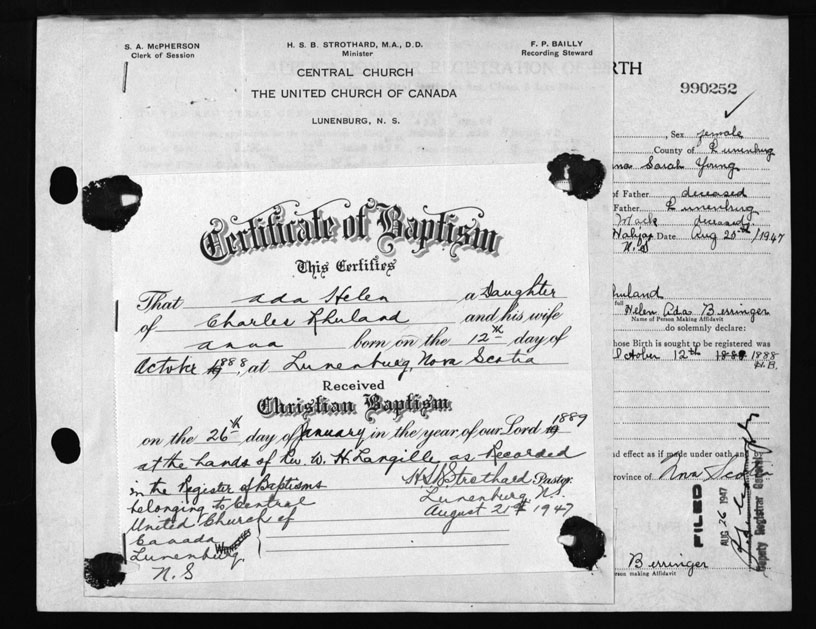 S. A. McPHERSON
Clerk of Session
H. S. B. STROTHARD, M.A., D.D.
Minister
F. P. BAILLY
Recording Steward
CENTRAL CHURCH
THE UNITED CHURCH OF CANADA
LUNENBURG, N. S.
Certificate of Baptism
This Certifies
That Ada Helen a Daughter
of Charles Rhuland and his wife
Anna born on the 12th day of
October 1888, at Lunenburg, Nova Scotia
Received
Christian Baptism
on the 26th day of January in the year of our Lord 1889
at the hands of Rev. W. H. Langille as Recorded
in the Register of Baptisms
belonging to Central
United Church of
Canada
Lunenburg,
N. S
Witnesses
H S B Strothard Pastor
Lunenburg N.S.
August 21st 1947
RTH
990252
, Sex female
County of Lunenburg
na Sarah Young
of Father deceased
Father Lunenburg
Mack deceased
Date Aug 20th /1947
N.S
huland
full
Helen Ada Berringer
Name of Person Making Affidavit
do solemnly declare:
hose Birth is sought to be registered was
October 12th 1888
H.B.
nd effect as if made under oath and by
rovince of Nova Scotia
FILED
AUG 26 1947
Deputy Registrar General
Berringer
rson making Affidavit